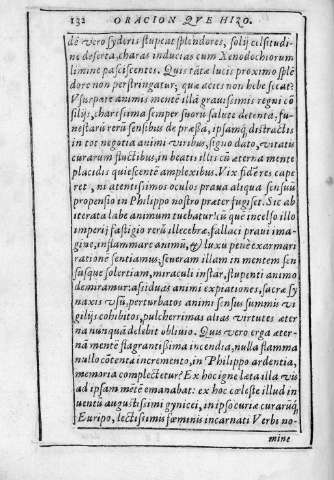 132 ORACION QVE HIZO.
dē vero syderis stupeat splendores, solij celsitudi-
ne deserta, charas inducias cum Xenodochiorum
limine pasciscentes. Quis tātæ lucis proximo splē
dore non perstringatur; quæ acies non hebescat?
Vsus pare animis mente illa grauissimis regni cō
silijs, charissima semper suorū salute detenta. fu-
nestarū rerū sensibus de præssa, ipsamq; distractis
in tot negotia animi viribus, signo dato, vitatis
curarum fluctibus, in beatis illis cū æterna mente
placidis quiescentē amplexibus. Vix fidē res cape
ret, ni atentissimos oculos praua aliqua sensuū
propensio in Philippo nostro præter fugiset. Sic ab
iterata labe animum tuebatur: cū que in celso illo
imperij fastigio rerū illecebræ, fallaci praui ima-
gine, inflammare animū, & luxu penè exarmari
ratione sentiamus; seueram illam in mentem sen
susque solertiam, miraculi instar, stupenti animo
demiramur. assiduas animi expiationes, sacræ sy
naxis vsū, perturbatos animi sensus summis vi
gilijs cohibitos, pulcherrimas alias virtutes æter
na nunquā delebit obliuio. Quis vero erga æter-
nā mentē flagrantissima incendia, nulla flamma
nullo cōtenta incremento, in Philippo ardentia,
memoria complectetur? Ex hoc igne læta illa vis
ad ipsam mētē emanabat: ex hoc cæleste illud in
uentū augustissimi gynicei, in ipso curiæ curarūq;
Euripo, lectissimis fæminis incarnati Verbi no-
mine